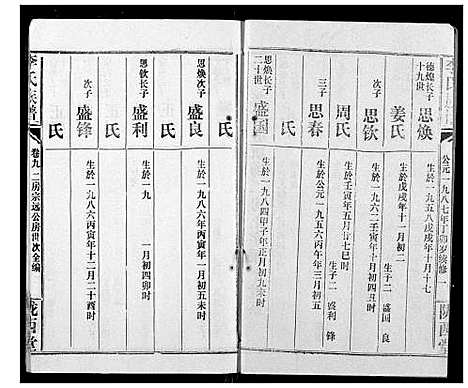 李氏族譜
公元一九八七年丁卯岁续修 一
隴西堂
德煌长子
十九世
思焕
生於一九五八戊戌年十月十七
姜氏
生於戊戌年十一月初二
生子二 盛国 良
次子
思钦
生於一九六二壬寅年十月初四丑时
周氏
生於壬寅年五月廿七巳时
生子二 盛利 锋
三子
思春
生於公元一九五六丙午年三月初五
氏
思焕长子
二十世
盛国
生於一九八四甲子年正月初九未时
氏
思焕次子
盛良
生於一九八六年丙寅年一月初五未时
氏
思钦长子
盛利
生於一九 一月初四卯时
氏
次子
盛锋
生於一九八六丙寅年十二月二十酉时
氏
李氏族譜
卷九 二房宗远公房世次全编
隴西堂